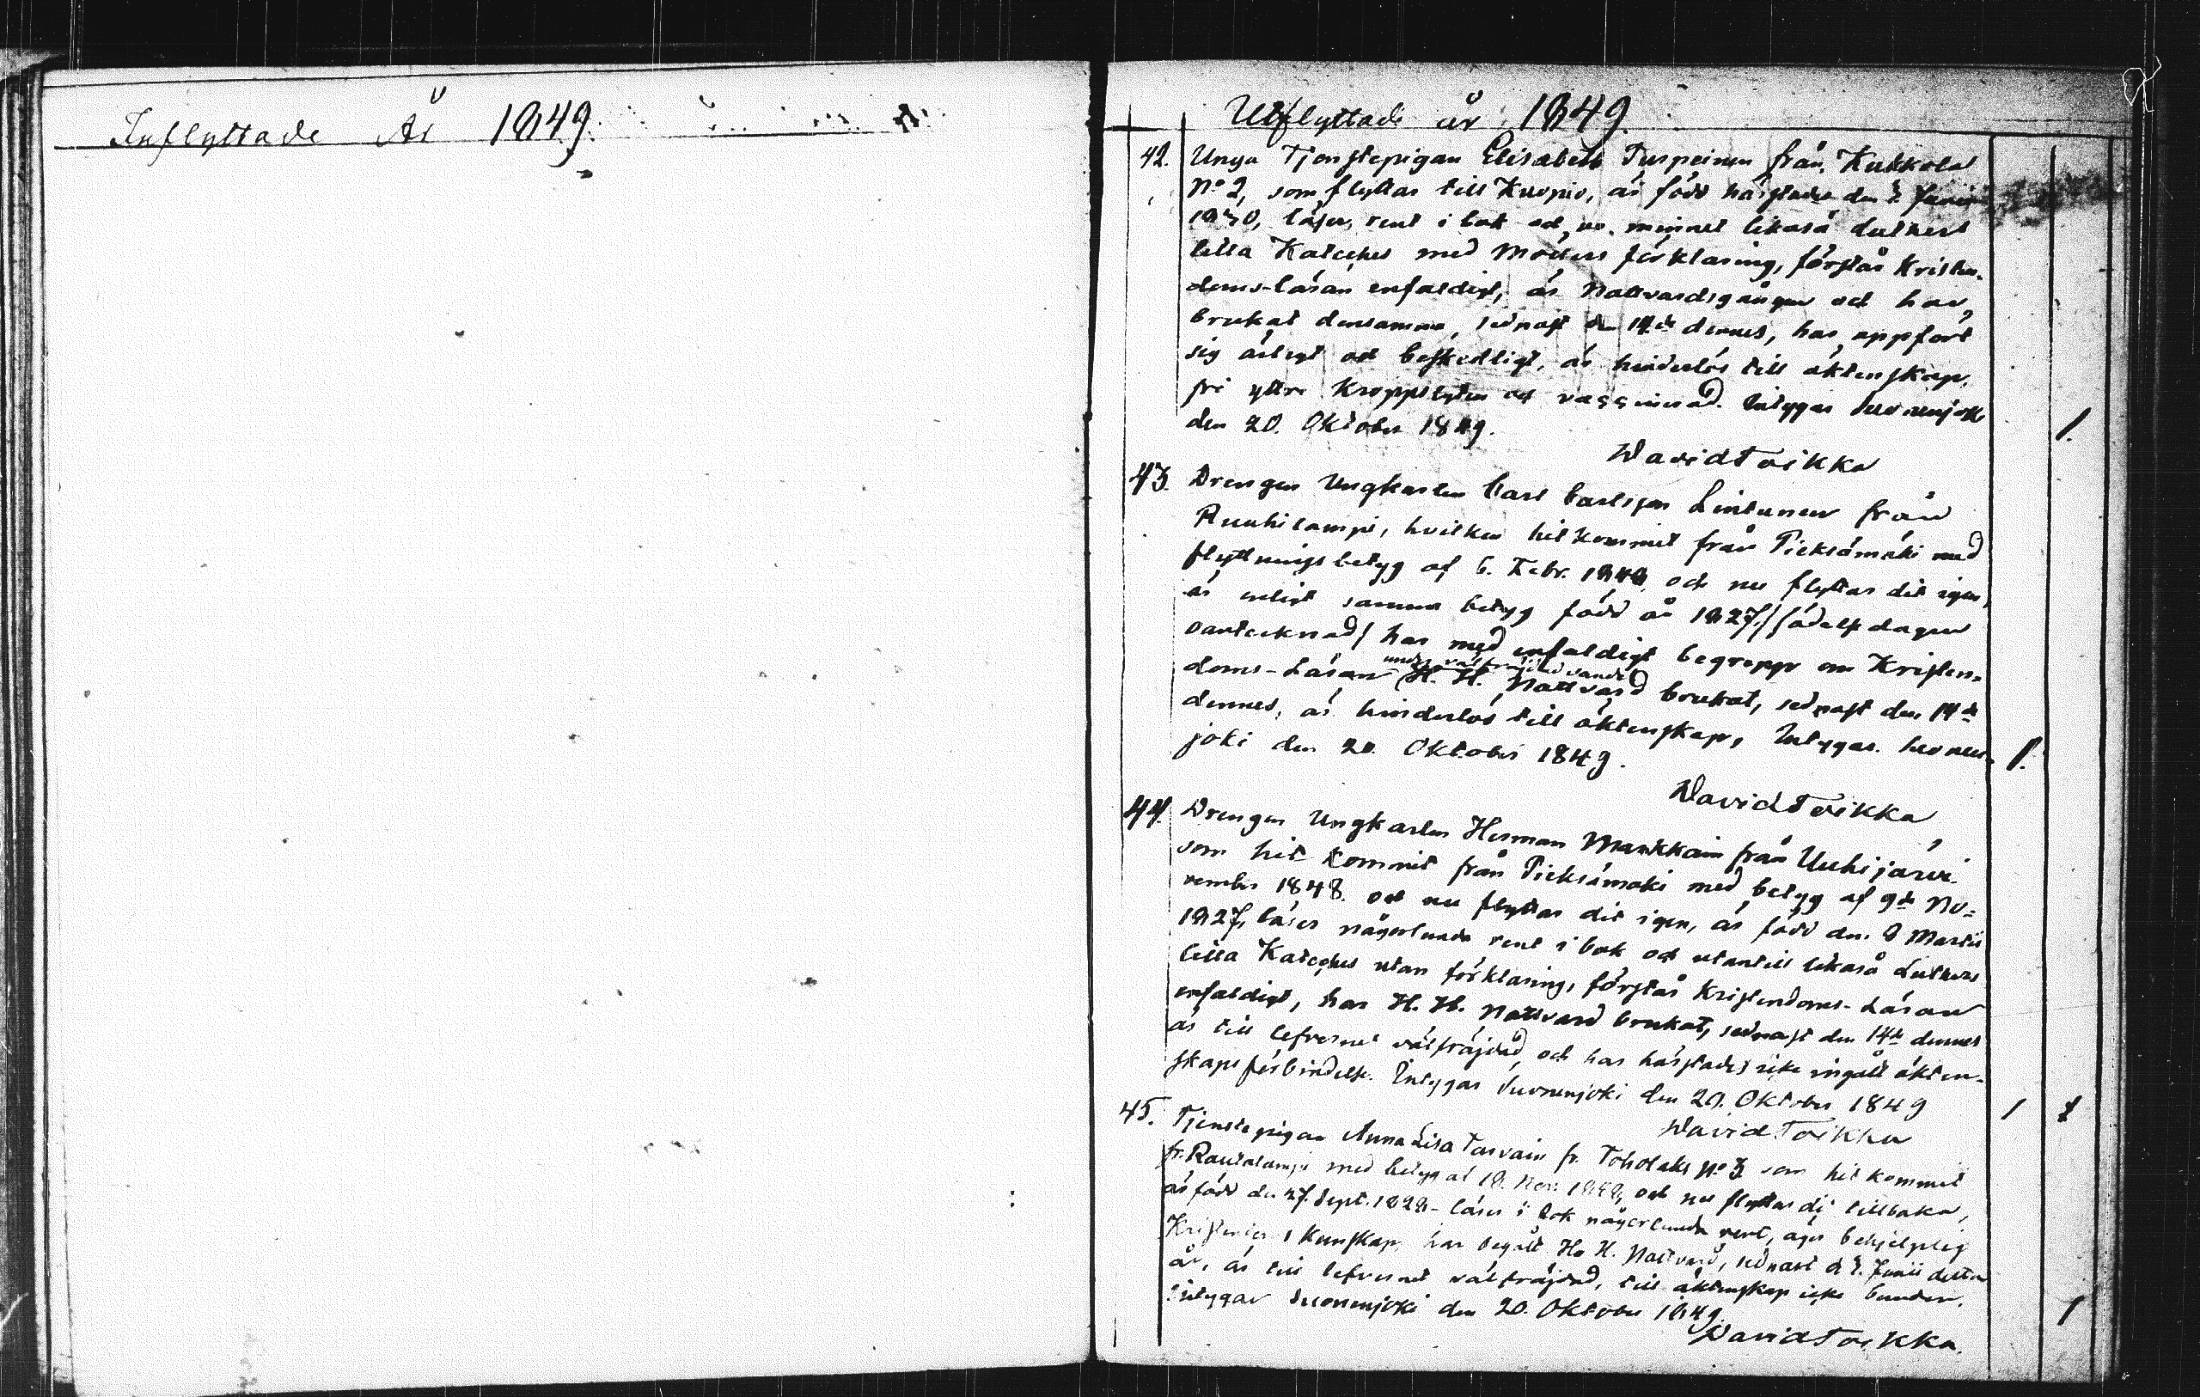 Inflyttade År 1849.
Utflyttade år 1849
42. Unga Tjenstepigan Elisabeth Turpeinen från Kukkola
No 2, som flyttar till Kuopio, är född härstädes den Junii
1830, läser rent i bok och ur minnet likaså Lutheri
lilla Kateches med Möllers förklaring, förstår Kristen-
doms-läran enfaldigt, är Nattvardsgången och har
brukat densamma, sednast den 14de dennes, har uppfört
sig ärligt och beskedligt, är hinderlös till äktenskap,
fri yttre kroppslyten och vaccinerad. Intygar Suonenjoki
den 20. Oktober 1849.
David Toikka
43. Drengen Ungkarlen Carl Carlsson Lintunen från
Ruuhilampi, hvilken hit kommit från Pieksämäki med
flyttningsbetyg af 6. Febr. och nu flyttar dit igen,
är enligt samma betyg född år 1827 / födelsedagen
oantecknad / har med enfaldigt begrepp om Kristen-
doms-Läran under välfräjdad vandel H. H. Nattvard brukat, sednast den 14de
dennes, är hinderlös till äktenskap, Intygar. Suonen-
joki den 20. Oktober 1849.
David Toikka
44. Drengen Ungkarlen Herman Markkain från Uuhijärvi
som hit kommit från Pieksämäki med betyg af 9de No-
vember 1848. och nu flyttar dit igen, är född den Martii
1827, läser någorlunda rent i bok och utantill likaså Lutheri
lilla Kateches utan förklaring, förstår Kristendoms-Läran
enfaldigt, har H. H. Nattvard brukat, sednast den 14de dennes
är till lefvernet välfräjdad, och har härstädes icke ingått äkten-
skapsförbindelse. Intygar Suonenjoki den 20. Oktober 1849
David Toikka
45. Tjenstepigan Anna Lisa Tarvain fr. Toholaks No 3 som hit kommit
fr. Rautalampi med betyg af 18. Nov. 1848, och nu flyttar dit tillbaka,
är född den 27. Sept. 1828 - läser i bok någorlunda rent, äger behjelplig
Kristendoms Kunskap, har begått H. H. Nattvard, sednast d. Junii detta
år, är till lefvernet välfräjdad, till äktenskap icke bunden.
Intygar Suonenjoki den 20. Oktober 1849.
David Toikka.